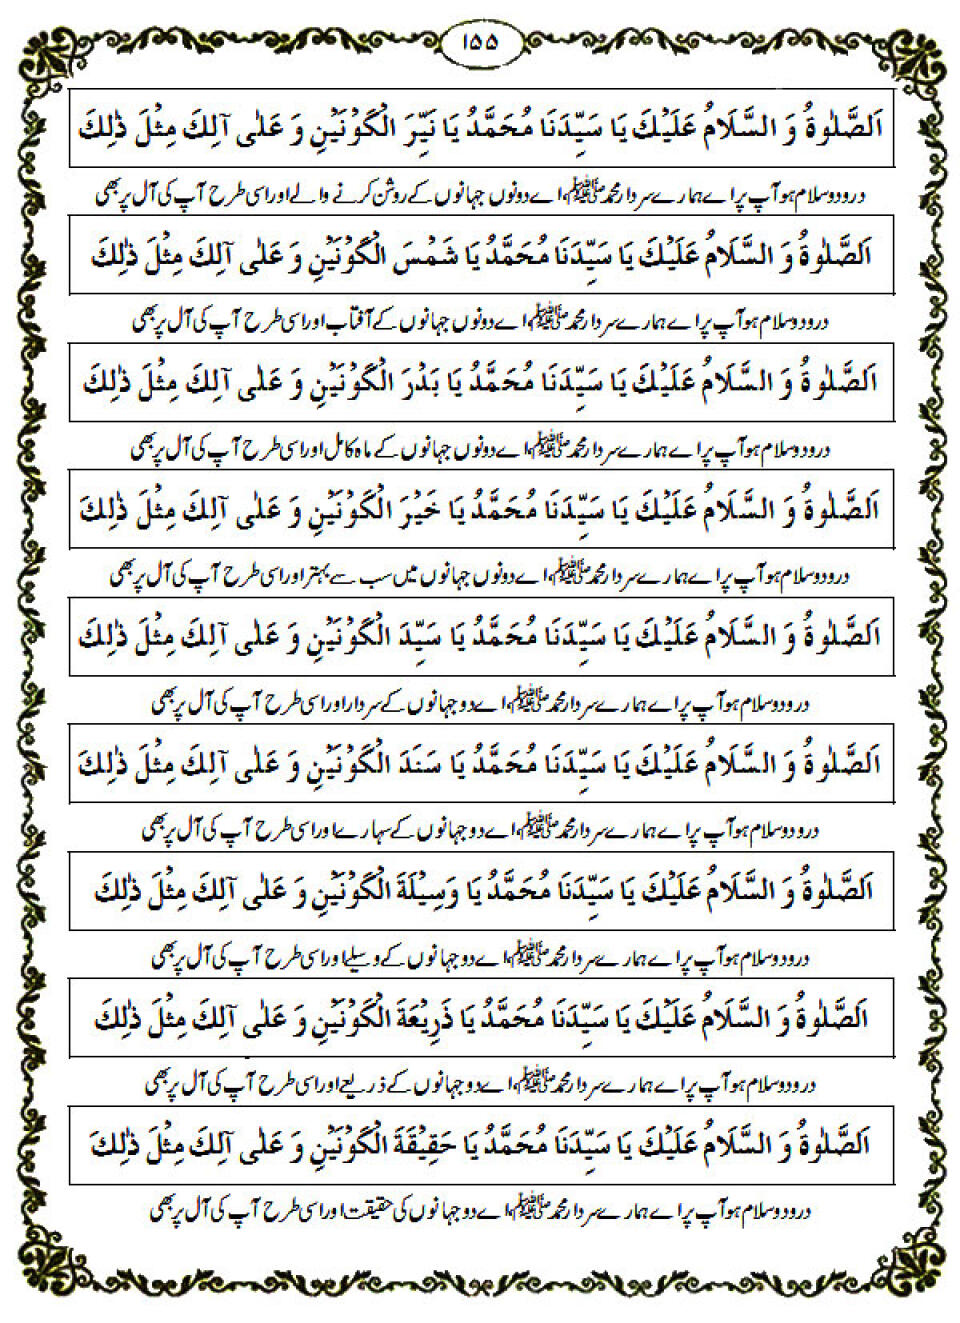 ۱۵۵
اَلصَّلٰوةُ وَ السَّلَامُ عَلَيْكَ يَا سَيِّدَنَا مُحَمَّدُ يَا نَيِّرَ الْكَوْنَيْنِ وَ عَلٰى آلِكَ مِثْلَ ذٰلِكَ
درود و سلام ہو آپ پر اے ہمارے سردار محمد ﷺ، اے دونوں جہانوں کے روشن کرنے والے اور اسی طرح آپ کی آل پر بھی
اَلصَّلٰوةُ وَ السَّلَامُ عَلَيْكَ يَا سَيِّدَنَا مُحَمَّدُ يَا شَمْسَ الْكَوْنَيْنِ وَ عَلٰى آلِكَ مِثْلَ ذٰلِكَ
درود و سلام ہو آپ پر اے ہمارے سردار محمد ﷺ، اے دونوں جہانوں کے آفتاب اور اسی طرح آپ کی آل پر بھی
اَلصَّلٰوةُ وَ السَّلَامُ عَلَيْكَ يَا سَيِّدَنَا مُحَمَّدُ يَا بَدْرَ الْكَوْنَيْنِ وَ عَلٰى آلِكَ مِثْلَ ذٰلِكَ
درود و سلام ہو آپ پر اے ہمارے سردار محمد ﷺ، اے دونوں جہانوں کے ماہ کامل اور اسی طرح آپ کی آل پر بھی
اَلصَّلٰوةُ وَ السَّلَامُ عَلَيْكَ يَا سَيِّدَنَا مُحَمَّدُ يَا خَيْرَ الْكَوْنَيْنِ وَ عَلٰى آلِكَ مِثْلَ ذٰلِكَ
درود و سلام ہو آپ پر اے ہمارے سردار محمد ﷺ، اے دونوں جہانوں میں سب سے بہتر اور اسی طرح آپ کی آل پر بھی
اَلصَّلٰوةُ وَ السَّلَامُ عَلَيْكَ يَا سَيِّدَنَا مُحَمَّدُ يَا سَيِّدَ الْكَوْنَيْنِ وَ عَلٰى آلِكَ مِثْلَ ذٰلِكَ
درود و سلام ہو آپ پر اے ہمارے سردار محمد ﷺ، اے دو جہانوں کے سردار اور اسی طرح آپ کی آل پر بھی
اَلصَّلٰوةُ وَ السَّلَامُ عَلَيْكَ يَا سَيِّدَنَا مُحَمَّدُ يَا سَنَدَ الْكَوْنَيْنِ وَ عَلٰى آلِكَ مِثْلَ ذٰلِكَ
درود و سلام ہو آپ پر اے ہمارے سردار محمد ﷺ، اے دو جہانوں کے سہارے اور اسی طرح آپ کی آل پر بھی
اَلصَّلٰوةُ وَ السَّلَامُ عَلَيْكَ يَا سَيِّدَنَا مُحَمَّدُ يَا وَسِيْلَةَ الْكَوْنَيْنِ وَ عَلٰى آلِكَ مِثْلَ ذٰلِكَ
درود و سلام ہو آپ پر اے ہمارے سردار محمد ﷺ، اے دو جہانوں کے وسیلے اور اسی طرح آپ کی آل پر بھی
اَلصَّلٰوةُ وَ السَّلَامُ عَلَيْكَ يَا سَيِّدَنَا مُحَمَّدُ يَا ذَرِيْعَةَ الْكَوْنَيْنِ وَ عَلٰى آلِكَ مِثْلَ ذٰلِكَ
درود و سلام ہو آپ پر اے ہمارے سردار محمد ﷺ، اے دو جہانوں کے ذریعے اور اسی طرح آپ کی آل پر بھی
اَلصَّلٰوةُ وَ السَّلَامُ عَلَيْكَ يَا سَيِّدَنَا مُحَمَّدُ يَا حَقِيْقَةَ الْكَوْنَيْنِ وَ عَلٰى آلِكَ مِثْلَ ذٰلِكَ
درود و سلام ہو آپ پر اے ہمارے سردار محمد ﷺ، اے دو جہانوں کی حقیقت اور اسی طرح آپ کی آل پر بھی